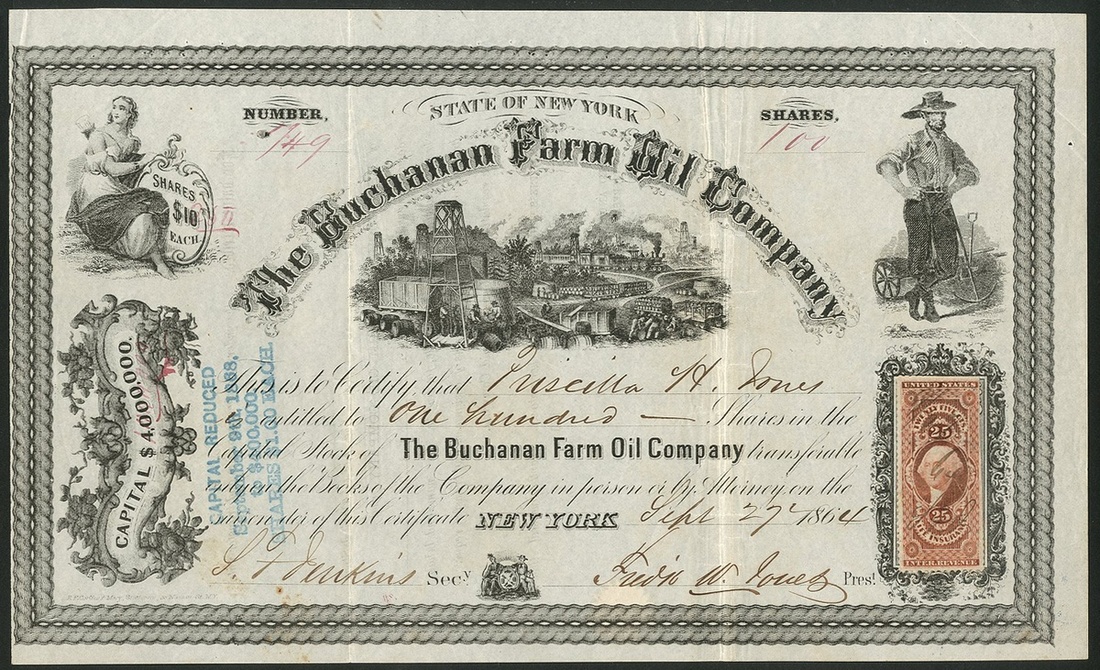 STATE OF NEW YORK
NUMBER,
SHARES,
100
The Buchanan Farm Oil Company
SHARES
$10
EACH
CAPITAL $4,000,000.
CAPITAL REDUCED
This is to Certify that Priscilla H. Jones
entitled to One hundred — Shares in the
Capital Stock of The Buchanan Farm Oil Company transferable
only on the Books of the Company in person or by Attorney on the
surrender of this Certificate NEW YORK Sept 27 1864
S. T. Jenkins Secy.
Fredk W. Jones Prest.
UNITED STATES
25
25
INTER. REVENUE